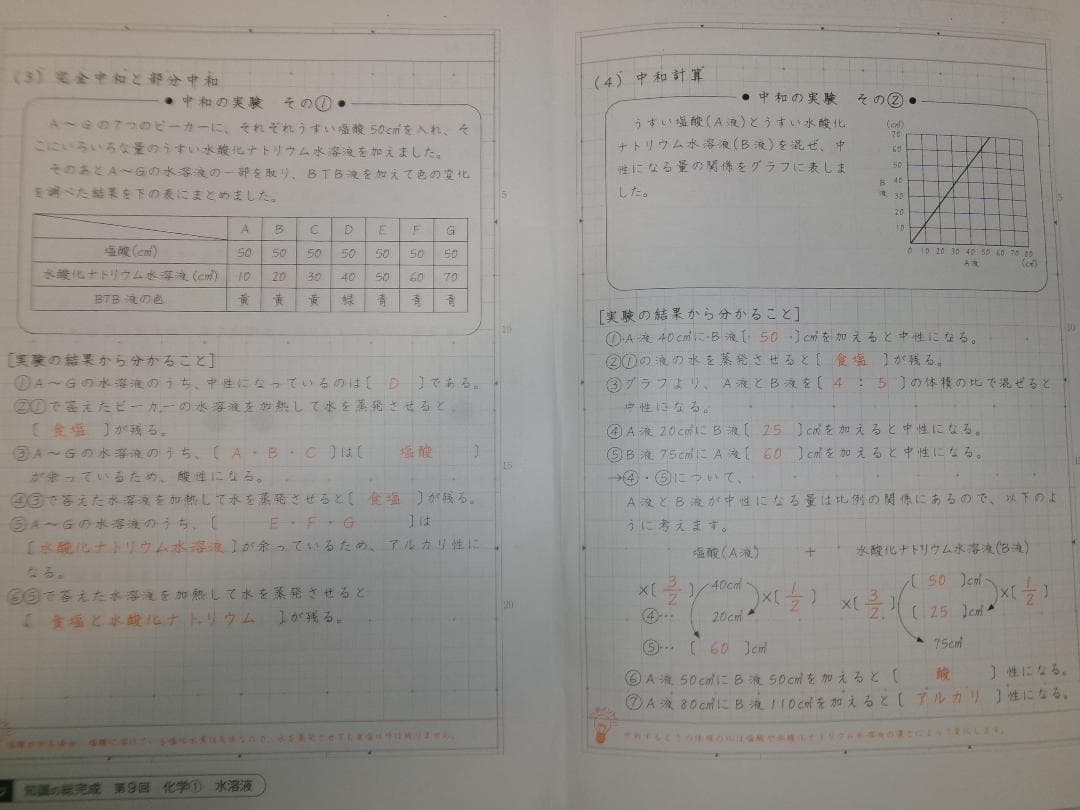 (3) 完全中和と部分中和
● 中和の実験 その① ●
A〜Gの7つのビーカーに、それぞれうすい塩酸50㎤を入れ、そ
こにいろいろな量のうすい水酸化ナトリウム水溶液を加えました。
そのあとA〜Gの水溶液の一部を取り、BTB液を加えて色の変化
を調べた結果を下の表にまとめました。
A B C D E F G
塩酸(㎤) 50 50 50 50 50 50 50
水酸化ナトリウム水溶液(㎤) 10 20 30 40 50 60 70
BTB液の色 黄 黄 黄 緑 青 青 青
[実験の結果から分かること]
①A〜Gの水溶液のうち、中性になっているのは[ D ]である。
②①で答えたビーカーの水溶液を加熱して水を蒸発させると、
[ 食塩 ]が残る。
③A〜Gの水溶液のうち、[ A・B・C ]は[ 塩酸 ]
が余っているため、酸性になる。
④③で答えた水溶液を加熱して水を蒸発させると[ 食塩 ]が残る。
⑤A〜Gの水溶液のうち、[ E・F・G ]は
[水酸化ナトリウム水溶液]が余っているため、アルカリ性に
なる。
⑥⑤で答えた水溶液を加熱して水を蒸発させると
[ 食塩と水酸化ナトリウム ]が残る。
知識の総完成 第9回 化学① 水溶液
(4) 中和計算
● 中和の実験 その② ●
うすい塩酸(A液)とうすい水酸化
ナトリウム水溶液(B液)を混ぜ、中
性になる量の関係をグラフに表しま
した。
(㎤)
70
60
50
40
30
20
10
B液
0 10 20 30 40 50 60 70 80
A液 (㎤)
[実験の結果から分かること]
①A液40㎤にB液[ 50 ]㎤を加えると中性になる。
②①の液の水を蒸発させると[ 食塩 ]が残る。
③グラフより、A液とB液を[ 4 : 5 ]の体積の比で混ぜると
中性になる。
④A液20㎤にB液[ 25 ]㎤を加えると中性になる。
⑤B液75㎤にA液[ 60 ]㎤を加えると中性になる。
→④・⑤について、
A液とB液が中性になる量は比例の関係にあるので、以下のよ
うに考えます。
塩酸(A液) + 水酸化ナトリウム水溶液(B液)
×[ 3/2 ] 40㎤ ×[ 1/2 ] ×[ 3/2 ] [ 50 ]㎤ ×[ 1/2 ]
④… 20㎤ [ 25 ]㎤
⑤… [ 60 ]㎤ 75㎤
⑥A液50㎤にB液50㎤を加えると[ 酸 ]性になる。
⑦A液80㎤にB液110㎤を加えると[ アルカリ ]性になる。